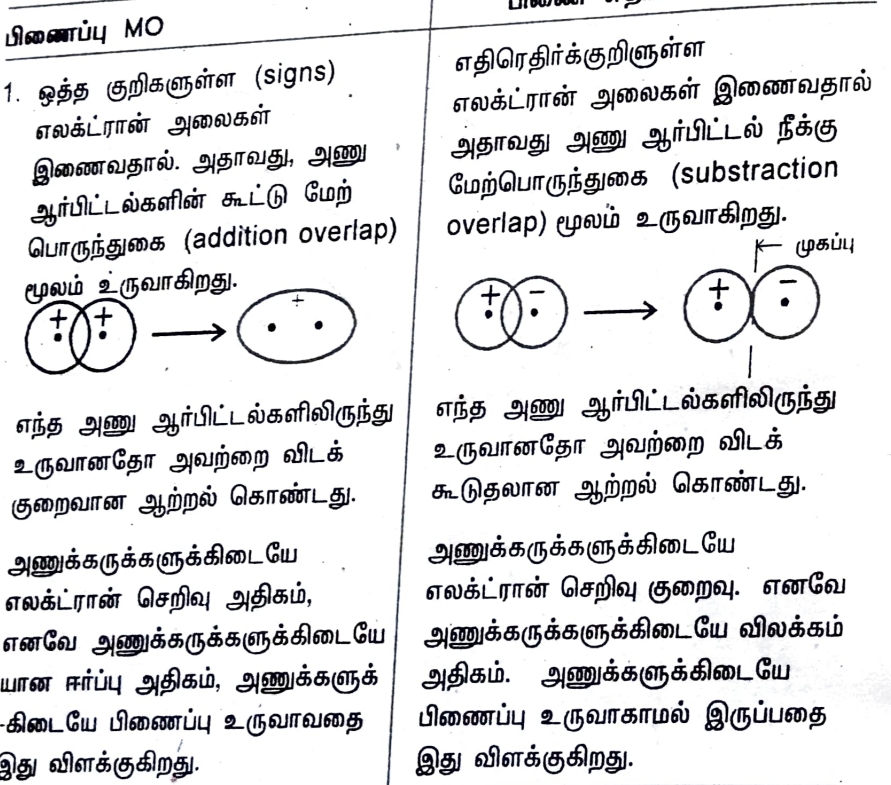 பிணைப்பு MO
1. ஒத்த குறிகளுள்ள (signs)
எலக்ட்ரான் அலைகள்
இணைவதால். அதாவது, அணு
ஆர்பிட்டல்களின் கூட்டு மேற்
பொருந்துகை (addition overlap)
மூலம் உருவாகிறது.
+ +
+
எந்த அணு ஆர்பிட்டல்களிலிருந்து
உருவானதோ அவற்றை விடக்
குறைவான ஆற்றல் கொண்டது.
அணுக்கருக்களுக்கிடையே
எலக்ட்ரான் செறிவு அதிகம்,
எனவே அணுக்கருக்களுக்கிடையே
யான ஈர்ப்பு அதிகம், அணுக்களுக்
-கிடையே பிணைப்பு உருவாவதை
இது விளக்குகிறது.
எதிரெதிர்க்குறிளுள்ள
எலக்ட்ரான் அலைகள் இணைவதால்
அதாவது அணு ஆர்பிட்டல் நீக்கு
மேற்பொருந்துகை (substraction
overlap) மூலம் உருவாகிறது.
முகப்பு
+ −
+ −
எந்த அணு ஆர்பிட்டல்களிலிருந்து
உருவானதோ அவற்றை விடக்
கூடுதலான ஆற்றல் கொண்டது.
அணுக்கருக்களுக்கிடையே
எலக்ட்ரான் செறிவு குறைவு. எனவே
அணுக்கருக்களுக்கிடையே விலக்கம்
அதிகம். அணுக்களுக்கிடையே
பிணைப்பு உருவாகாமல் இருப்பதை
இது விளக்குகிறது.